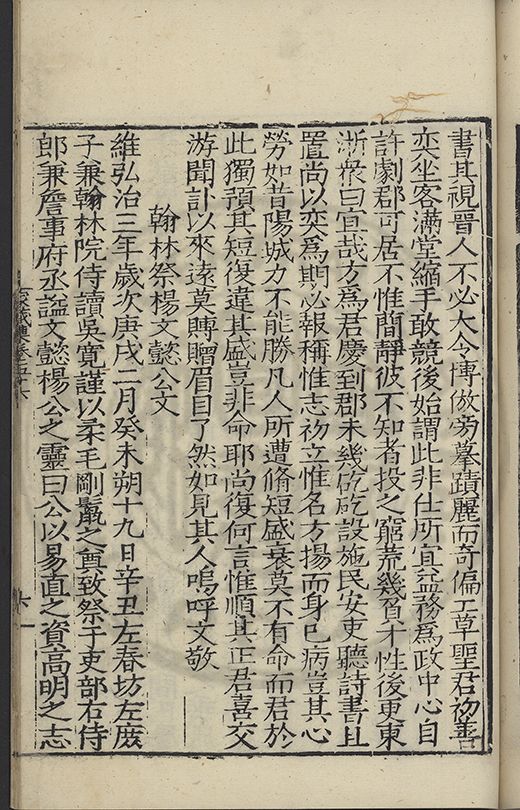 書其視晉人不必大令愽倣旁摹蹟麗而奇偏工草聖君初善
奕坐客滿堂縮手敢競後始謂此非仕所宜益務為政中心自
許劇郡可居不惟簡靜彼不知者投之窮荒幾負才性後更東
浙衆曰宜哉方爲君慶到郡未幾矻矻設施民安吏聽詩書且
置尚以奕爲期必報稱惟志初立惟名方揚而身已病豈其心
勞如昔陽城力不能勝凡人所遭脩短盛衰莫不有命而君於
此獨預其短復違其盛豈非命耶尚復何言惟順其正君喜交
游聞訃以來遠莫賻贈眉目了然如見其人嗚呼文敬
翰林祭楊文懿公文
維弘治三年歲次庚戌二月癸未朔十九日辛丑左春坊左庻
子兼翰林院侍讀吳寛謹以柔毛剛鬛之奠致祭于吏部右侍
郎兼詹事府丞謚文懿楊公之靈曰公以易直之資髙明之志